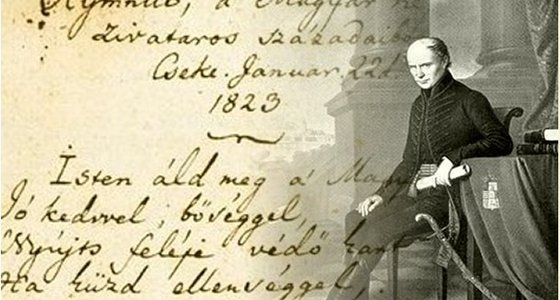 Hymnus, a' Magyar
Zivataros századaibó
Cseke. Januar. 22d.
1823
Isten áld meg a' Magy
Jó kedvvel, bőséggel,
Nyújts feléje védő kart
Ha küzd ellenséggel,